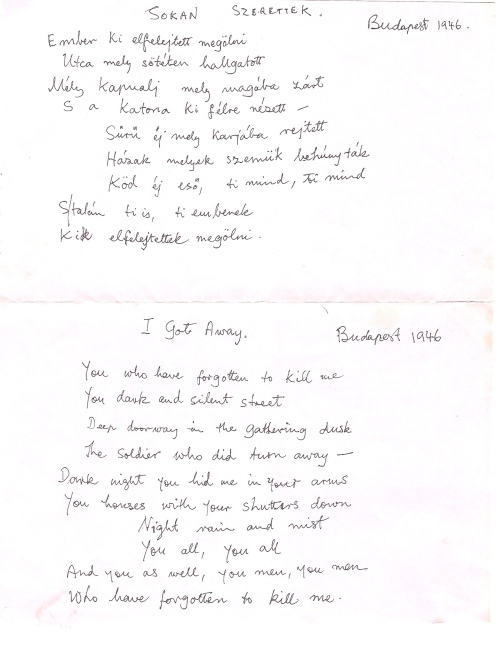 SOKAN SZERETTEK.
Budapest 1946.
Ember ki elfelejtett megölni
Utca mely sötéten hallgatott
Mély kapualj mely magába zárt
S a Katona ki félre nézett —
Sűrű éj mely karjába rejtett
Házak melyek szemük behúnyták
Köd éj eső, ti mind, ti mind
S talán ti is, ti emberek
Kik elfelejtettek megölni.
I Got Away.
Budapest 1946
You who have forgotten to kill me
You dark and silent street
Deep doorway in the gathering dusk
The soldier who did turn away —
Dark night you hid me in your arms
You houses with your shutters down
Night rain and mist
You all, you all
And you as well, you men, you men
Who have forgotten to kill me.